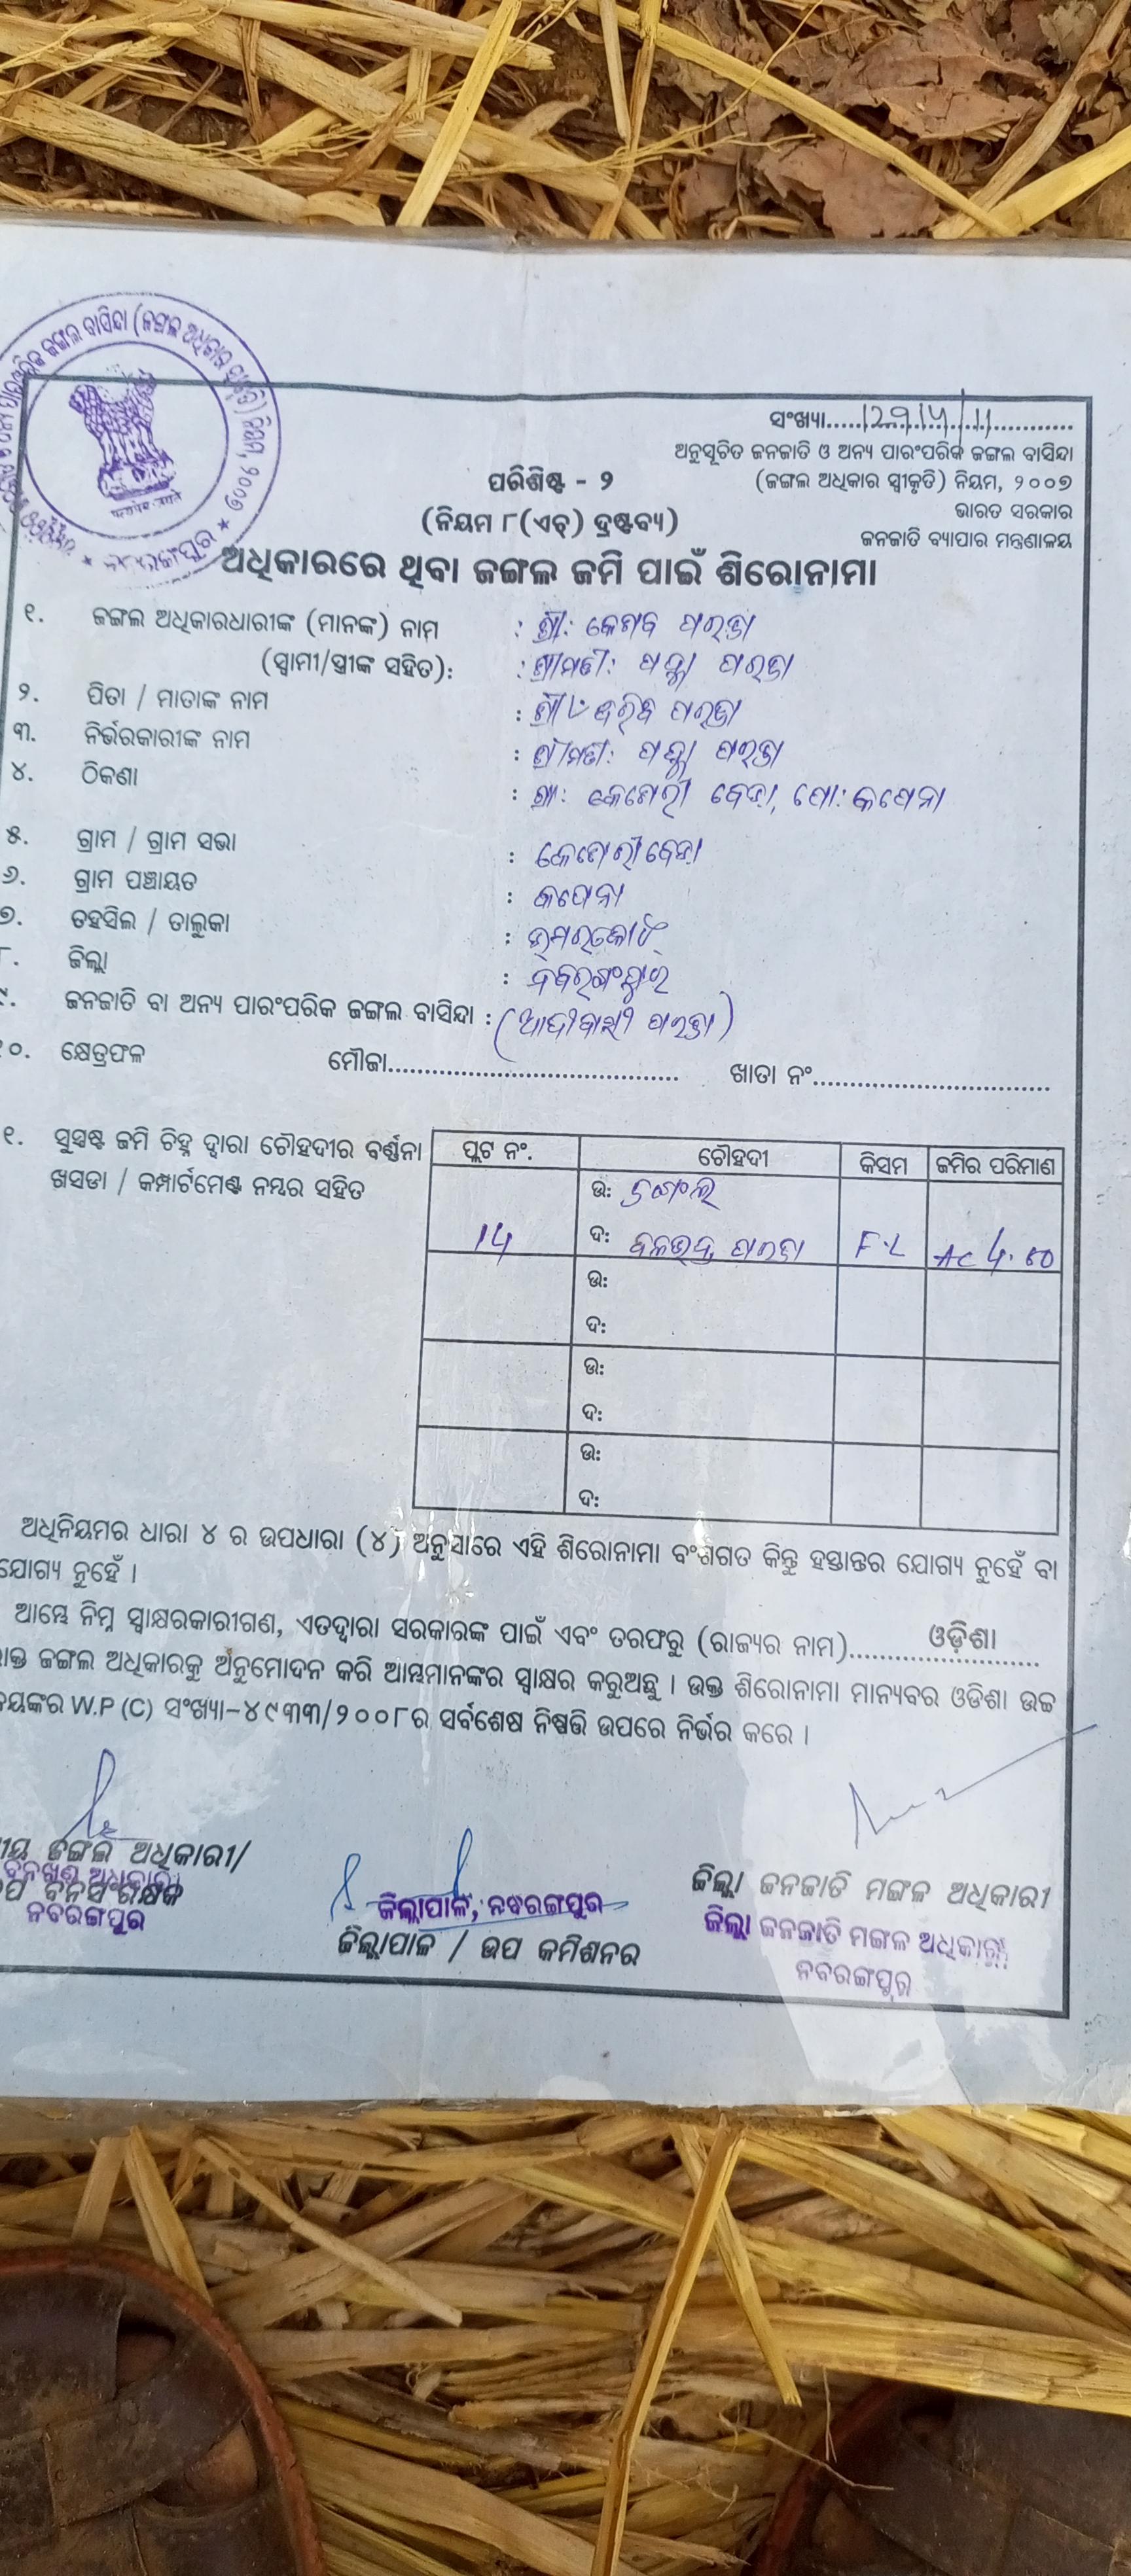 ଜଙ୍ଗଲ ବାସିନ୍ଦା (ଜଙ୍ଗଲ ଅଧିକାର ସ୍ୱୀକୃତି) ନିୟମ, ୨୦୦୭
सत्यमेव जयते
ସଂଖ୍ୟା
ଅନୁସୂଚିତ ଜନଜାତି ଓ ଅନ୍ୟ ପାରଂପରିକ ଜଙ୍ଗଲ ବାସିନ୍ଦା
(ଜଙ୍ଗଲ ଅଧିକାର ସ୍ୱୀକୃତି) ନିୟମ, ୨୦୦୭
ଭାରତ ସରକାର
ଜନଜାତି ବ୍ୟାପାର ମନ୍ତ୍ରଣାଳୟ
ପରିଶିଷ୍ଟ - ୨
(ନିୟମ ୮(ଏଚ୍) ଦ୍ରଷ୍ଟବ୍ୟ)
ଅଧିକାରରେ ଥିବା ଜଙ୍ଗଲ ଜମି ପାଇଁ ଶିରୋନାମା
୧. ଜଙ୍ଗଲ ଅଧିକାରଧାରୀଙ୍କ (ମାନଙ୍କ) ନାମ : ଶ୍ରୀ: କେଶବ ପରଜା
(ସ୍ୱାମୀ/ସ୍ତ୍ରୀଙ୍କ ସହିତ): : ଶ୍ରୀମତୀ: ପରଜା
୨. ପିତା / ମାତାଙ୍କ ନାମ : ଶ୍ରୀ ପରଜା
୩. ନିର୍ଭରକାରୀଙ୍କ ନାମ : ଶ୍ରୀମତୀ: ପରଜା
୪. ଠିକଣା : ଗ୍ରା: ବେଡା, ପୋ:
୫. ଗ୍ରାମ / ଗ୍ରାମ ସଭା :
୬. ଗ୍ରାମ ପଞ୍ଚାୟତ :
୭. ତହସିଲ / ତାଲୁକା : ଉମରକୋଟ
୮. ଜିଲ୍ଲା : ନବରଙ୍ଗପୁର
୯. ଜନଜାତି ବା ଅନ୍ୟ ପାରଂପରିକ ଜଙ୍ଗଲ ବାସିନ୍ଦା : (ଆଦୀବାସୀ ପରଜା)
୧୦. କ୍ଷେତ୍ରଫଳ ମୌଜା ଖାତା ନଂ
୧. ସୁସ୍ପଷ୍ଟ ଜମି ଚିହ୍ନ ଦ୍ୱାରା ଚୌହଦୀର ବର୍ଣ୍ଣନା
ଖସଡା / କମ୍ପାର୍ଟମେଣ୍ଟ ନମ୍ବର ସହିତ
ପ୍ଲଟ ନଂ. ଚୌହଦୀ କିସମ ଜମିର ପରିମାଣ
ଉ: ଜଙ୍ଗଲ
14 ଦ: ବଳଭଦ୍ର ପରଜା F.L AC
ଉ:
ଦ:
ଉ:
ଦ:
ଉ:
ଦ:
ଅଧିନିୟମର ଧାରା ୪ ର ଉପଧାରା (୪) ଅନୁସାରେ ଏହି ଶିରୋନାମା ବଂଶଗତ କିନ୍ତୁ ହସ୍ତାନ୍ତର ଯୋଗ୍ୟ ନୁହେଁ ବା
ଯୋଗ୍ୟ ନୁହେଁ ।
ଆମ୍ଭେ ନିମ୍ନ ସ୍ୱାକ୍ଷରକାରୀଗଣ, ଏତଦ୍ୱାରା ସରକାରଙ୍କ ପାଇଁ ଏବଂ ତରଫରୁ (ରାଜ୍ୟର ନାମ) ଓଡ଼ିଶା
ଜଙ୍ଗଲ ଅଧିକାରକୁ ଅନୁମୋଦନ କରି ଆମ୍ଭମାନଙ୍କର ସ୍ୱାକ୍ଷର କରୁଅଛୁ । ଉକ୍ତ ଶିରୋନାମା ମାନ୍ୟବର ଓଡିଶା ଉଚ୍ଚ
W.P (C) ସଂଖ୍ୟା-୪୯୩୩/୨୦୦୮ର ସର୍ବଶେଷ ନିଷ୍ପତ୍ତି ଉପରେ ନିର୍ଭର କରେ ।
ଜଙ୍ଗଲ ଅଧିକାରୀ/
ବନଖଣ୍ଡ ଅଧିକାରୀ
ବନ ସଂରକ୍ଷକ
ନବରଙ୍ଗପୁର
ଜିଲ୍ଲାପାଳ, ନବରଙ୍ଗପୁର
ଜିଲ୍ଲାପାଳ / ଉପ କମିଶନର
ଜିଲ୍ଲା ଜନଜାତି ମଙ୍ଗଳ ଅଧିକାରୀ
ଜିଲ୍ଲା ଜନଜାତି ମଙ୍ଗଳ ଅଧିକାରୀ
ନବରଙ୍ଗପୁର